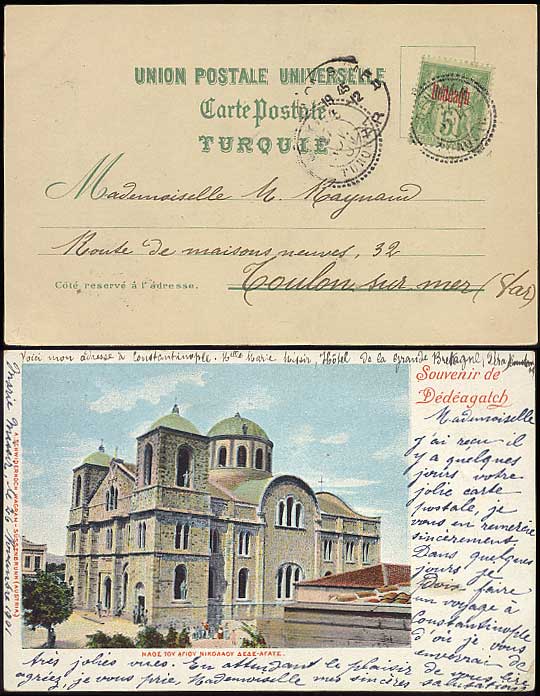 UNION POSTALE UNIVERSELLE
Carte Postale
TURQUIE
Dédéagh
5
Mademoiselle M. Raynaud
Route de maisons neuves, 32
Toulon sur mer (Var)
Côté reservé à l'adresse.
Voici mon adresse à Constantinople. Mlle Marie Missir, Hôtel de la Grande Bretagne, Péra
Souvenir de
Dédéagatch
Mademoiselle
j'ai reçu il
y a quelques
jours votre
jolie carte
postale, je
vous en remercie
sincèrement
Dans quelques
jours je
dois faire
un voyage à
Constantinople
d'où je vous
enverrai de
très jolies vues. En attendant le plaisir de vous lire
agréez, je vous prie, Mademoiselle mes sincères
Marie Missir, le 26 Novembre 1901
ΝΑΟΣ ΤΟΥ ΑΓΙΟΥ ΝΙΚΟΛΑΟΥ ΔΕΔΕ-ΑΓΑΤΣ.